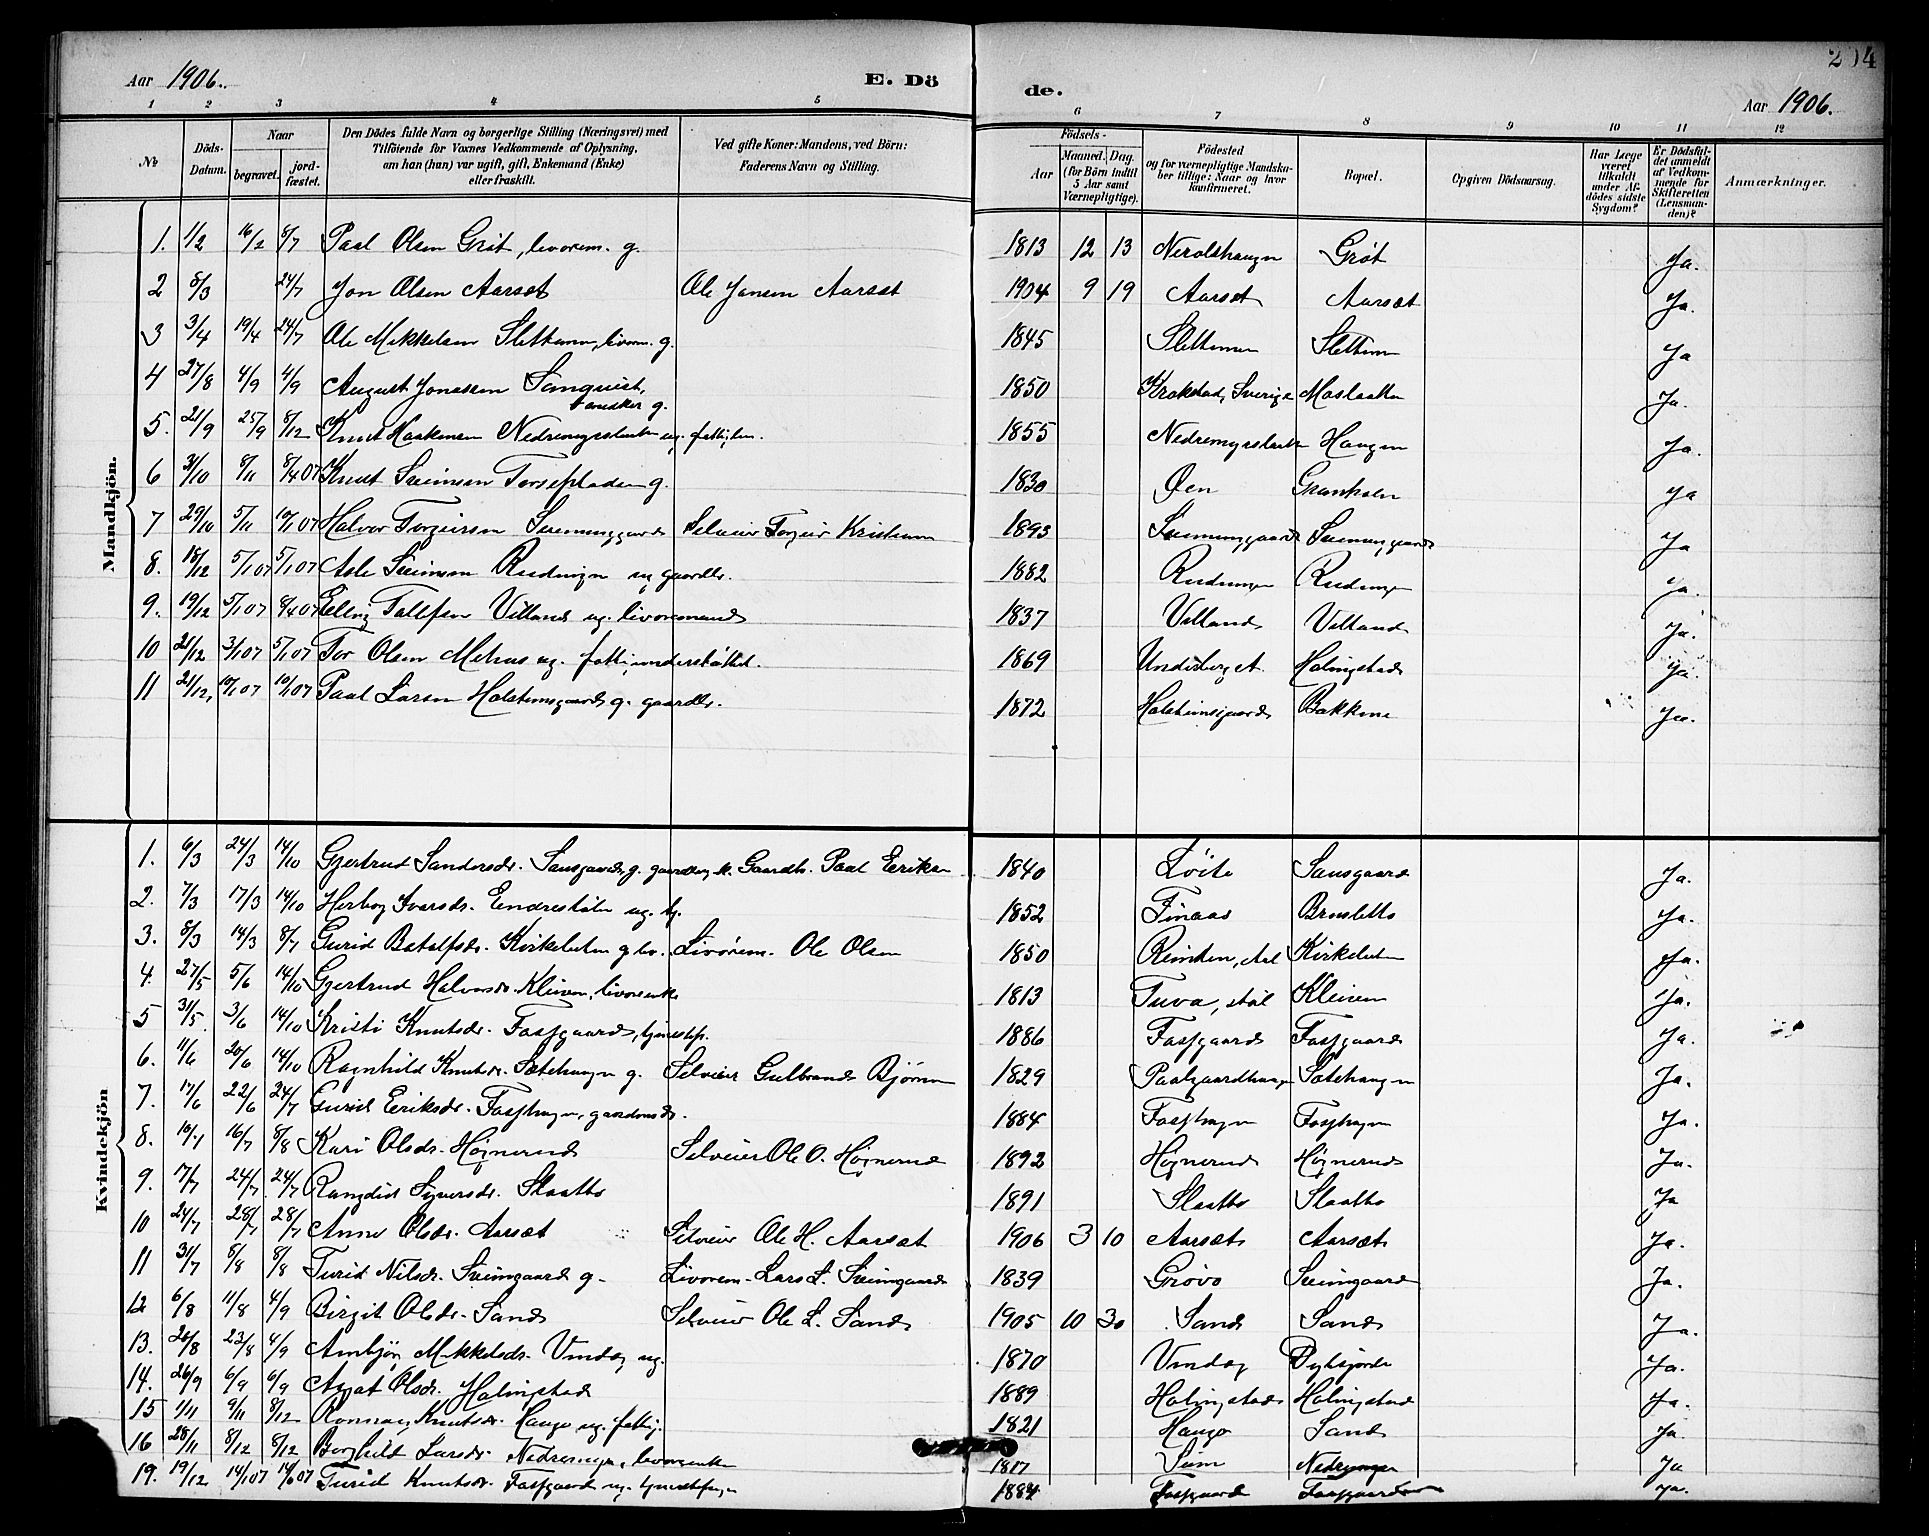 204
Aar 1906.
E. Dö
de.
Aar 1906.
1 2 3 4 5 6 7 8 9 10 11 12
No
Döds-Datum.
Naar
begravet.
jord-fæstet.
Den Dödes fulde Navn og borgerlige Stilling (Næringsvei) med
Tilföiende for Voxnes Vedkommende af Oplysning,
om han (hun) var ugift, gift, Enkemand (Enke)
eller fraskilt.
Ved gifte Koner: Mandens, ved Börn:
Faderens Navn og Stilling.
Födsels-
Aar
Maaned. Dag.
(for Börn indtil 5 Aar samt Værnepligtige).
Födested
og for værnepligtige Mandska-
ber tillige: Naar og hvor
konfirmeret.
Bopæl.
Opgiven Dödsaarsag.
Har Læge været tilkaldt under Af-dödes sidste Sygdom?
Er Dödsfal-det anmeldt af Vedkom-mende for Skifteretten (Lensman-den)?
Anmærkninger.
Mandkjön.
1. 1/2 16/2 8/7 Paal Olsen Gröt, livörem. g. 1813 12 13 Gröt Ja.
2 8/3 24/7 Jon Olsen Aarset Ole Jonsen Aarset 1904 9 19 Aarset Aarset Ja.
3 3/4 19/4 24/7 Ole Mikkelsen Slettemoen, livörem. g. 1845 Slettemoen Slettemoen Ja
4 27/8 4/9 4/9 August Jonassen g. 1850 Krokstad, Sverige Ja.
5. 21/9 25/9 8/12 Knut Haakonsen ug. fattiglem. 1855 Haugen Ja.
6 31/10 8/11 8/4 07 Knut Sveinsen g. 1830 Øen Granholen Ja
7 29/10 5/11 10/1 07 Halvor Torgeirsen Selveier Torgeir Kristensen 1893 Ja
8. 18/12 5/1 07 5/1 07 Asle Sveinsen Rudningen ug. gaardbr. 1882 Rudningen Rudningen Ja.
9. 19/12 5/1 07 8/4 07 Elling Tollefsen Villand ug. livöremand 1837 Villand Villand Ja.
10 21/12 3/1 07 5/1 07 Tor Olsen Mehus ug. fattigunderstöttet. 1869 Underberget Holmgstad Ja.
11 21/12 10/1 07 10/1 07 Paal Larsen Holstensgaard g. gaardbr. 1872 Holstensgaard Bakkene Ja.
Kvindekjön
1. 6/3 24/3 14/10 Gjertrud Sandersdr. Sansgaard, g. Gaardbr. Paal Eriksen 1840 Löite Sansgaard Ja.
2. 7/3 17/3 14/10 Herbjg Ivarsdr. Endrestölen ug. tj. 1852 Finaas Brusletto Ja.
3. 8/3 14/3 8/7 Gurid Botolfsdr. Livörem. Ole Olsen 1850 Reinton, Aal Ja.
4. 27/5 5/6 14/10 Gjertrud Halvorsdr. Kleiven, livörenke 1813 Tuva, Kleiven Ja.
5 31/5 3/6 14/10 Kristi Knutsdr. Fosgaard, 1886 Fosgaard Fosgaard Ja.
6. 11/6 20/6 14/10 Ragnhild Knutsdr. Sætehaugen g. Selveier Gulbrand Bjørnsen 1829 Paalgaardhaugen Sætehaugen Ja.
7. 17/6 22/6 24/7 Gurid Eriksdr. 1884 Ja.
8. 10/7 16/7 8/8 Kari Olsdr. Högnerud Selveier Ole O. Högnerud 1892 Högnerud Högnerud Ja.
9. 17/7 24/7 24/7 Rangdid Syversdr. Slaatto 1891 Slaatto Slaatto Ja
10 24/7 28/7 28/7 Anne Olsdr. Aarset Selveier Ole H. Aarset 1906 3 10 Aarset Aarset Ja.
11 31/7 8/8 8/8 Turid Nilsdr. Sveingaard g. Livörem. Lars L. Sveingaard 1839 Grövo Sveingaard Ja.
12 6/8 11/8 4/9 Birgit Olsdr. Sand Selveier Ole L. Sand 1905 10 30 Sand Sand Ja.
13. 20/8 23/8 4/9 Ambjör Mikkelsdr. Vindeg ug. 1870 Vindeg Ja.
14. 26/9 6/9 6/9 Agat Olsdr. Holmgstad 1889 Holmgstad Holmgstad Ja.
15 1/11 9/11 8/12 Ronnaug Knutsdr. Haugo ug. fattig. 1821 Haugo Sand Ja.
16 28/11 8/12 8/12 Borghild Larsdr. Nedremyren, livörenke 1817 Ja
19. 19/12 14/1 07 14/6 07 Turid Knutsdr. Fosgaard ug. 1884 Fosgaard Fosgaard Ja.